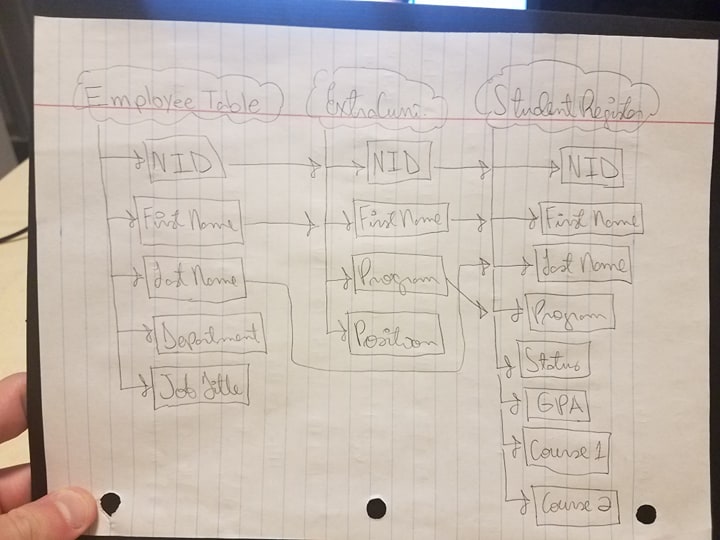 Employee Table
NID
First Name
Last Name
Department
Job Title
ExtraCurri.
NID
First Name
Program
Position
Student Register
NID
First Name
Last Name
Program
Status
GPA
Course 1
Course 2